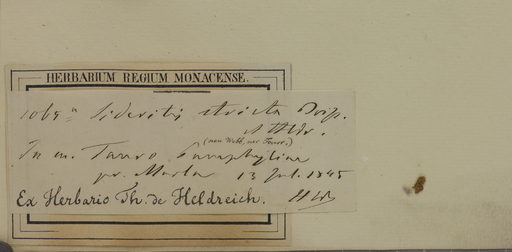 HERBARIUM REGIUM MONACENSE.
1069 a Sideritis stricta Boiss.
& Heldr.
(non Webb, nec
In m. Tauro Pamphyliae
pr. Marla 13 Jul. 1845
Ex Herbario Th. de Heldreich.